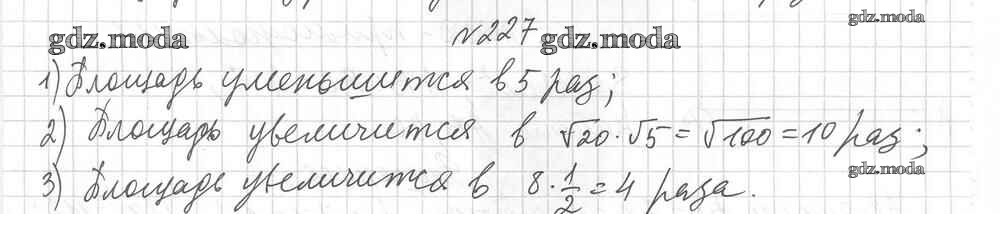 gdz.moda
№227
gdz.moda
gdz.moda
1) Площадь уменьшится в 5 раз;
2) Площадь увеличится в √20·√5=√100=10 раз;
gdz.moda
3) Площадь увеличится в 8·1/2=4 раза.